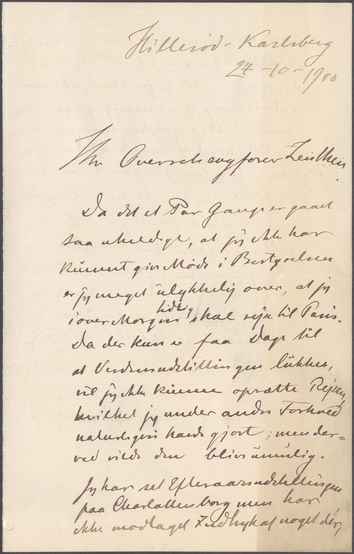 Hillerød - Karlsberg
24-10-1900
Hr. Overretssagfører Zeuthen.
Da det et Par Gange er gaaet
saa uheldigt, at jeg ikke har
kunnet give Møde i Bestyrelsen
er jeg meget ulykkelig over, at jeg
i over Morgen tidlig skal rejse til Paris.
Da der kun er faa Dage til
at Verdensudstillingen lukkes,
vil jeg ikke kunne opsætte Rejsen,
hvilket jeg under andre Forhold
naturligvis havde gjort; men der-
ved vilde den blive umulig.
Jeg har set Efteraarsudstillingen
paa Charlottenborg men har
ikke modtaget Indtryk af noget dér,